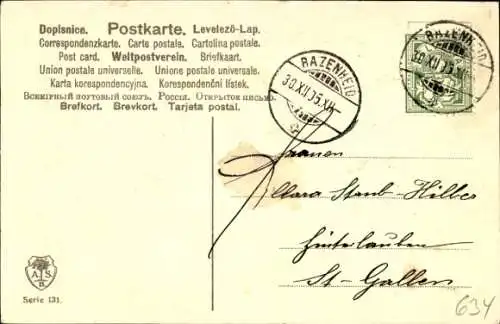 Dopisnice. Postkarte. Levelezö-Lap.
Correspondenzkarte. Carte postale. Cartolina postale.
Post card. Weltpostverein. Briefkaart.
Union postale universelle. Unione postale universale.
Karta korespondencyjna. Korespondenční lístek.
Всемірный почтовый союзъ. Россія. Открытое письмо.
Brefkort. Brevkort. Tarjeta postal.
BAZENHEID
30.XII.05.XII
BAZENHEID
30.XII.05.XI
Frauen
Clara Staub-Hilber
Hinterlauben
St-Gallen
A S
B
Serie 131.
634